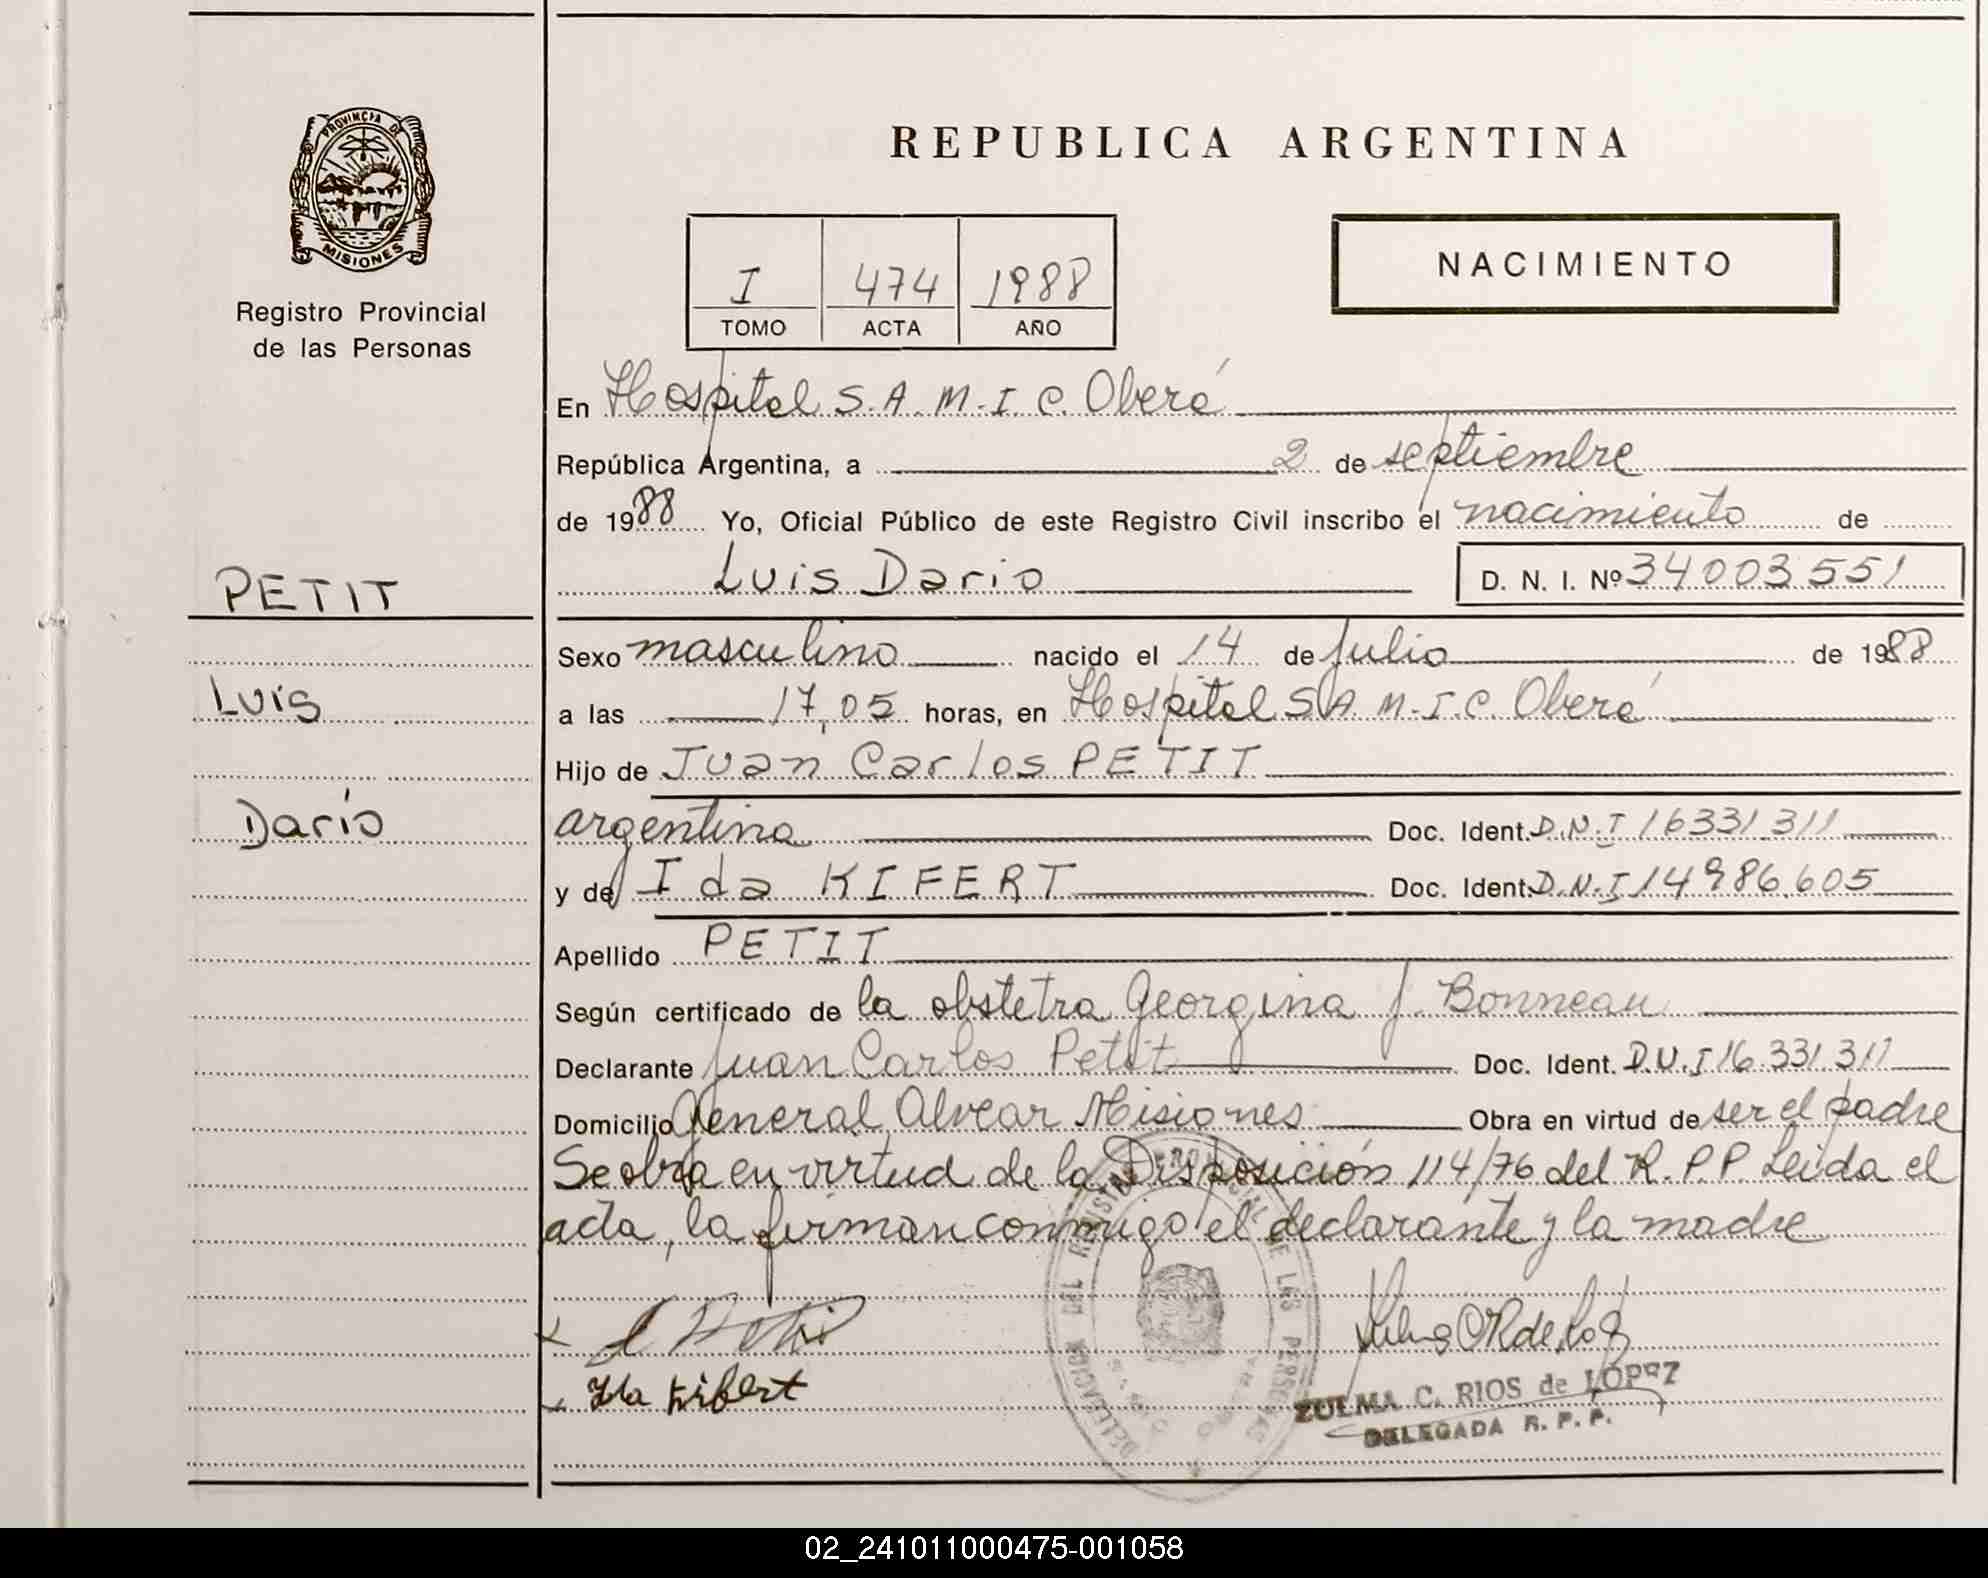 PROVINCIA DE
MISIONES
Registro Provincial
de las Personas
PETIT
Luis
Darío
REPUBLICA ARGENTINA
I 474 1988
TOMO ACTA AÑO
NACIMIENTO
En Hospital S.A.M.I.C. Oberá
República Argentina, a 2 de septiembre
de 1988 Yo, Oficial Público de este Registro Civil inscribo el nacimiento de
Luis Dario D. N. I. Nº 34003551
Sexo masculino nacido el 14 de julio de 1988
a las 17,05 horas, en Hospital S.A.M.I.C. Oberá
Hijo de Juan Carlos PETIT
argentina Doc. Ident. D.N.I 16331311
y de Ida KIFERT Doc. Ident. D.N.I 14986.605
Apellido PETIT
Según certificado de la obstetra Georgina J. Bonneau
Declarante Juan Carlos Petit Doc. Ident. D.N.I 16.331.311
Domicilio General Alvear Misiones Obra en virtud de ser el padre
Se obra en virtud de la Disposición 114/76 del R.P.P. Leida el
acta, la firman conmigo el declarante y la madre
Ida Kifert
DELEGACION DEL REGISTRO PROVINCIAL DE LAS PERSONAS
ZULMA C. RIOS de LOPEZ
DELEGADA R. P. P.
02_241011000475-001058